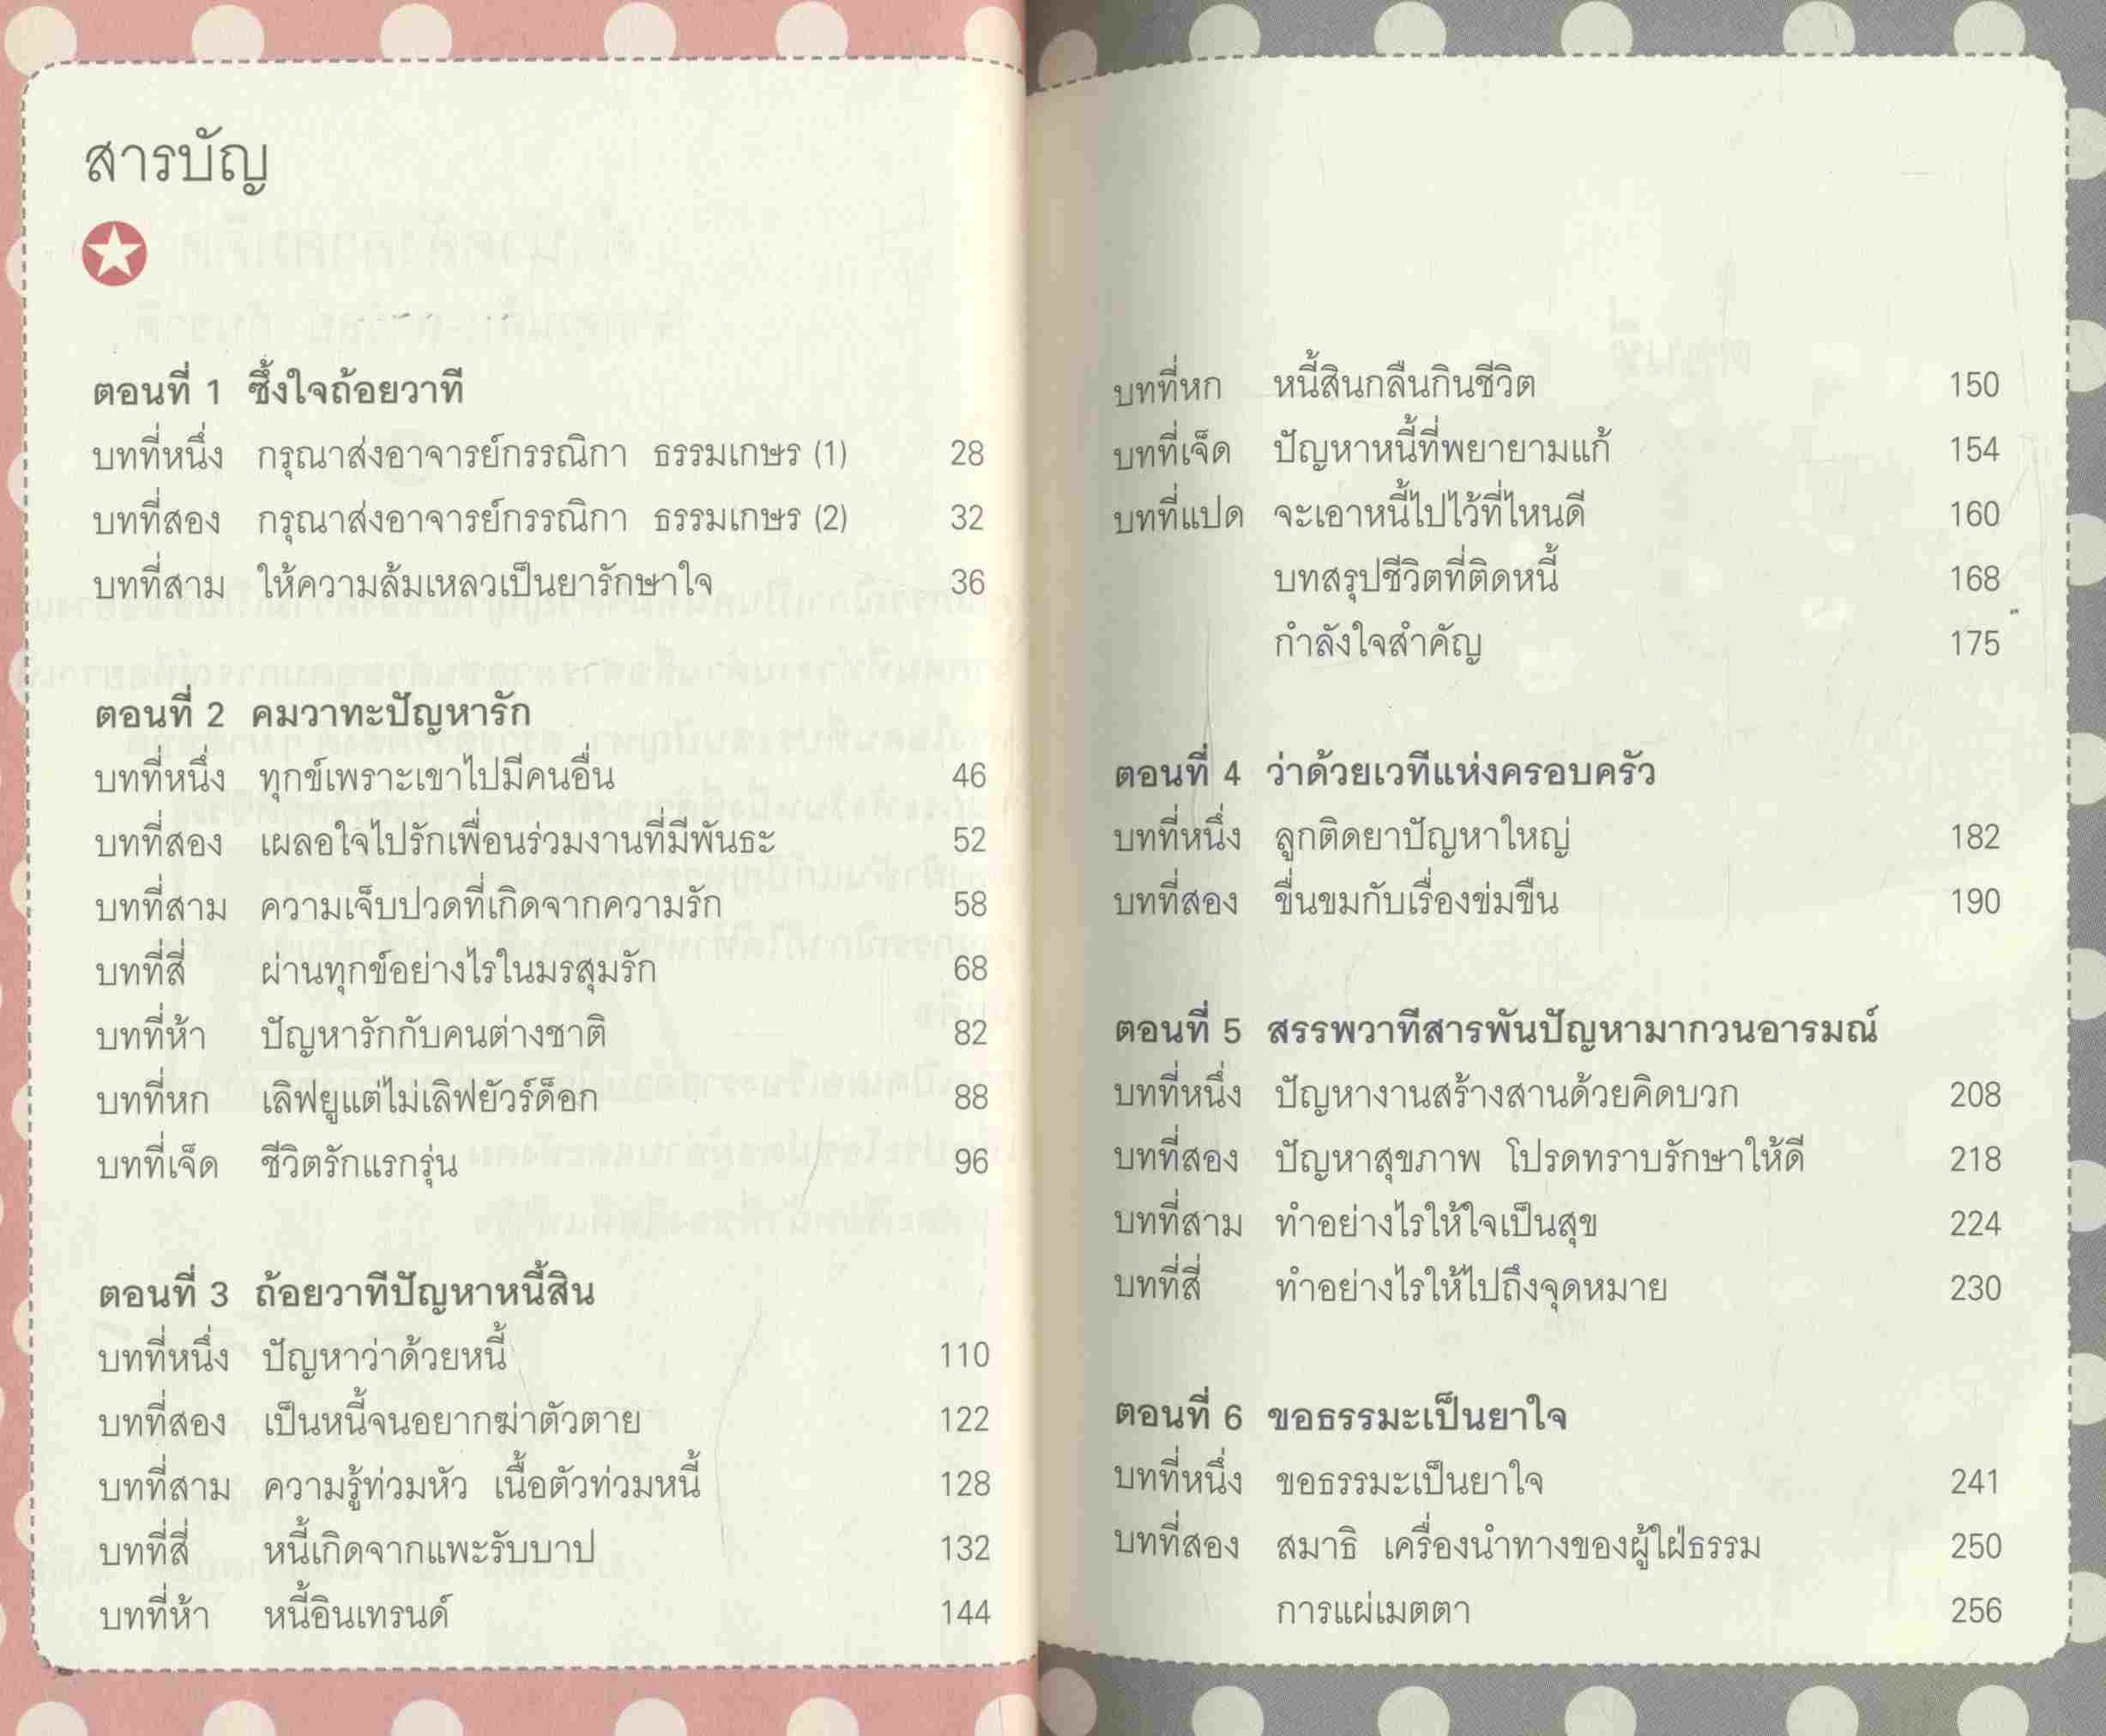 สารบัญ
ตอนที่ 1 ซึ้งใจถ้อยวาที
บทที่หนึ่ง กรุณาส่งอาจารย์กรรณิกา ธรรมเกษร (1) 28
บทที่สอง กรุณาส่งอาจารย์กรรณิกา ธรรมเกษร (2) 32
บทที่สาม ให้ความล้มเหลวเป็นยารักษาใจ 36
ตอนที่ 2 คมวาทะปัญหารัก
บทที่หนึ่ง ทุกข์เพราะเขาไปมีคนอื่น 46
บทที่สอง เผลอใจไปรักเพื่อนร่วมงานที่มีพันธะ 52
บทที่สาม ความเจ็บปวดที่เกิดจากความรัก 58
บทที่สี่ ผ่านทุกข์อย่างไรในมรสุมรัก 68
บทที่ห้า ปัญหารักกับคนต่างชาติ 82
บทที่หก เลิฟยูแต่ไม่เลิฟยัวร์ด็อก 88
บทที่เจ็ด ชีวิตรักแรกรุ่น 96
ตอนที่ 3 ถ้อยวาทีปัญหาหนี้สิน
บทที่หนึ่ง ปัญหาว่าด้วยหนี้ 110
บทที่สอง เป็นหนี้จนอยากฆ่าตัวตาย 122
บทที่สาม ความรู้ท่วมหัว เนื้อตัวท่วมหนี้ 128
บทที่สี่ หนี้เกิดจากแพะรับบาป 132
บทที่ห้า หนี้อินเทรนด์ 144
บทที่หก หนี้สินกลืนกินชีวิต 150
บทที่เจ็ด ปัญหาหนี้ที่พยายามแก้ 154
บทที่แปด จะเอาหนี้ไปไว้ที่ไหนดี 160
บทสรุปชีวิตที่ติดหนี้ 168
กำลังใจสำคัญ 175
ตอนที่ 4 ว่าด้วยเวทีแห่งครอบครัว
บทที่หนึ่ง ลูกติดยาปัญหาใหญ่ 182
บทที่สอง ขื่นขมกับเรื่องข่มขืน 190
ตอนที่ 5 สรรพวาทีสารพันปัญหามากวนอารมณ์
บทที่หนึ่ง ปัญหางานสร้างสานด้วยคิดบวก 208
บทที่สอง ปัญหาสุขภาพ โปรดทราบรักษาให้ดี 218
บทที่สาม ทำอย่างไรให้ใจเป็นสุข 224
บทที่สี่ ทำอย่างไรให้ไปถึงจุดหมาย 230
ตอนที่ 6 ขอธรรมะเป็นยาใจ
บทที่หนึ่ง ขอธรรมะเป็นยาใจ 241
บทที่สอง สมาธิ เครื่องนำทางของผู้ใฝ่ธรรม 250
การแผ่เมตตา 256